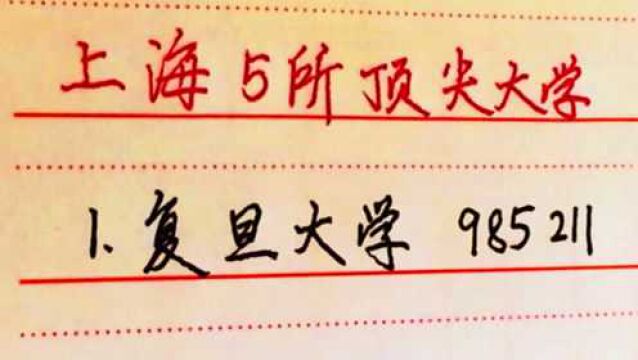 上海5所顶尖大学
1.复旦大学 985 211